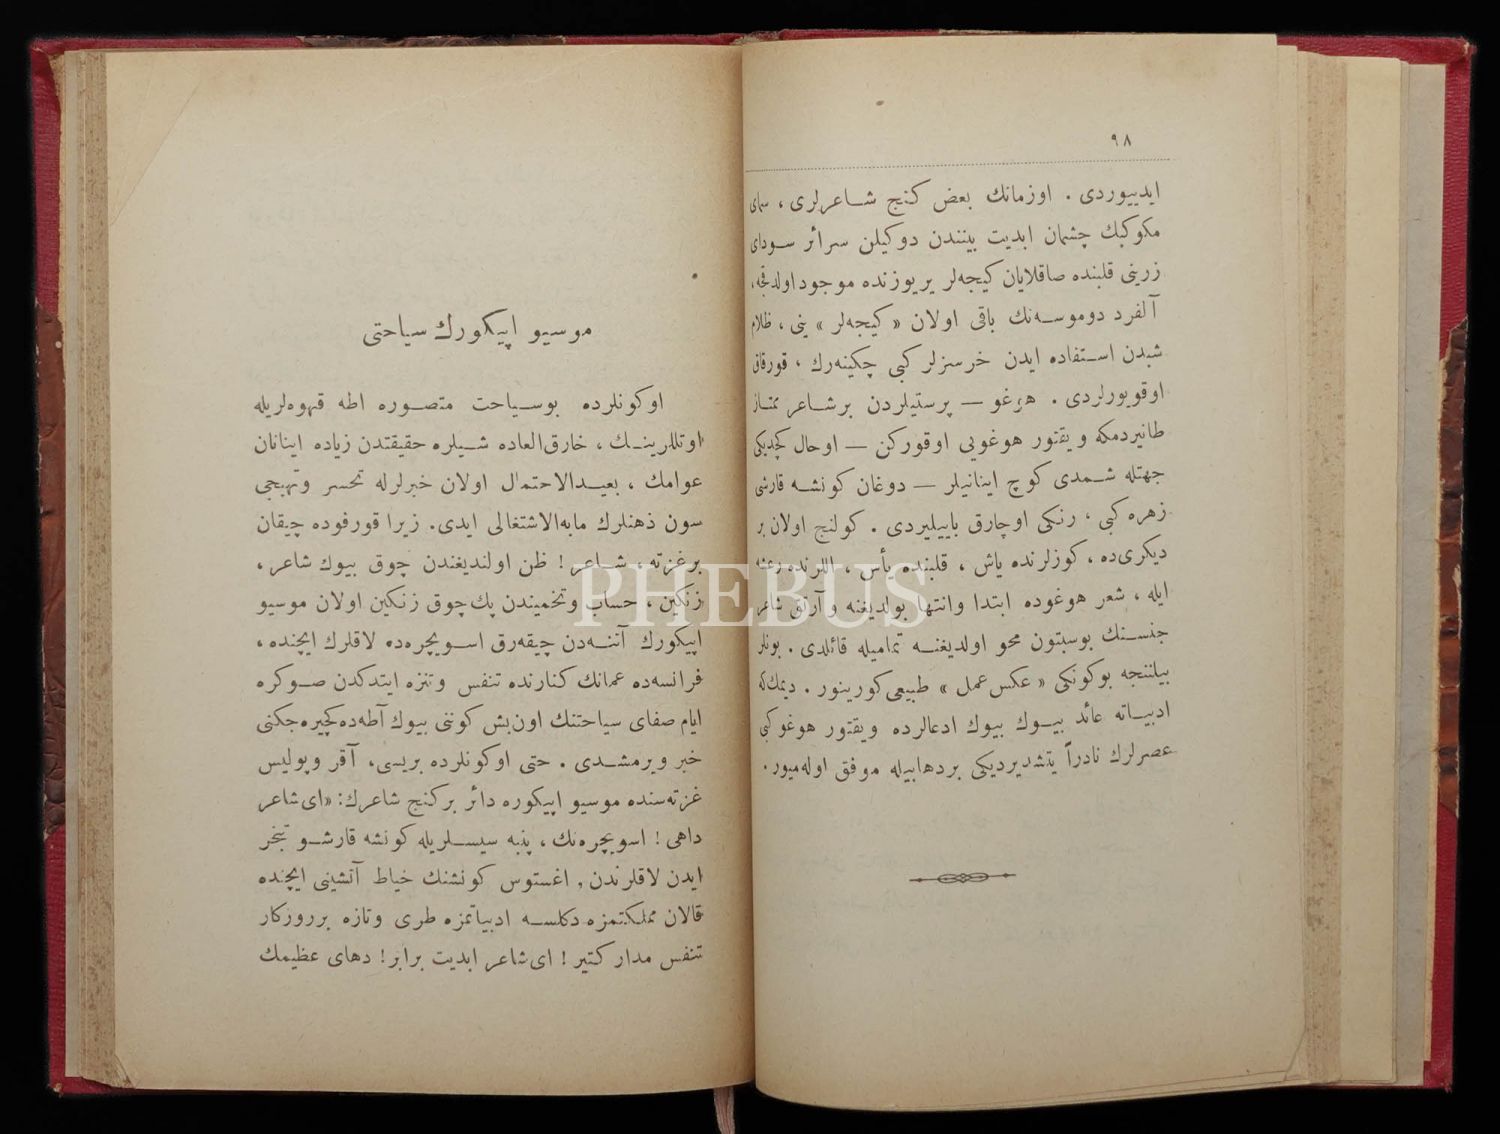 ٩٨
ایدییوردی . اوزمانك بعض كنج شـاعرلری ، سمای
مكوكبك چشمان ابدیت بیننندن دوكیلن سرائر سـودای
زرینی قلبنده صاقلایان كیجه‌لر یریوزنده موجود اولدقجه ،
آلفرد دوموسـه‌نك باقی اولان « كیجه‌لر » ینی ، ظلام
شبدن اسـتفاده ایدن خرسزلر كبی چكینه‌رك ، قورقاق
اوقویورلردی . هوغو — پرستیلردن برشـاعر ممتـاز
طانیردمكه ویقتور هوغویی اوقوركن — اوحال كچدیكی
جهتله شـمدی كوچ اینانیلر — دوغان كونشـه قارشی
زهره كبی ، رنكی اوچارق باییلیردی . كولنج اولان بر
دیكری‌ده ، كوزلرنده یاش ، قلبنده یأس ، اللرنده رعشه
ایله ، شعر هوغوده ابتدا وانتها بولدیغنه وآرتق شاعر
جنسـنك بوسبتون محو اولدیغنـه تمامیله قائلدی . بونلر
بیلننجه بوكونكی « عكس عمل » طبیعی كورینور . دیمك كه
ادبیـاته عائد بیـوك بیوك ادعالرده ویقتور هوغو كبی
عصرلرك نادراً یتشدیردیكی بردهابیله موفق اوله‌میور .
موسیو اپیكورك سیاحتی
اوكونلرده بوسـیاحت متصـوره اطه قهوه‌لریله
اوتللرینـك ، خارق‌العاده شـیلره حقیقتدن زیاده اینانان
عوامك ، بعیـدالاحتمال اولان خبرلرله تحسر وتهیجی
سون ذهنلرك مابه‌الاشتغالی ایدی. زیرا قورفوده چیقان
برغزته ، شـاعر ! ظن اولندیغندن چوق بیوك شاعر ،
زنكین ، حساب وتخمیندن پك‌چوق زنكین اولان موسیو
اپیكورك آتنـه‌دن چیقه‌رق اسـویچره‌ده لاقلرك ایچنده ،
فرانسه‌ده عمانك كنارنده تنفس وتنزه ایتدكدن صـوكره
ایام صفای سیاحتنك اون‌بش كوننی بیوك آطه‌ده كچیره‌جكنی
خبر ویرمشـدی . حتی اوكونلرده بریسی، آقر وپولیس
غزته‌سنده موسیو اپیكوره دائر بركنج شاعرك: «ای‌شاعر
داهی ! اسویچره‌نك ، پنبه سیسـلریله كونشه قارشـو تبخر
ایدن لاقلرندن ، اغستوس كونشنك خیاط آتشینی ایچنده
قالان مملكتمزه دكلسـه ادبیاتمزه طری وتازه برروزكار
تنفس مدار كتیر ! ای‌شاعر ابدیت برابر ! دهای عظیمك
PHEBUS